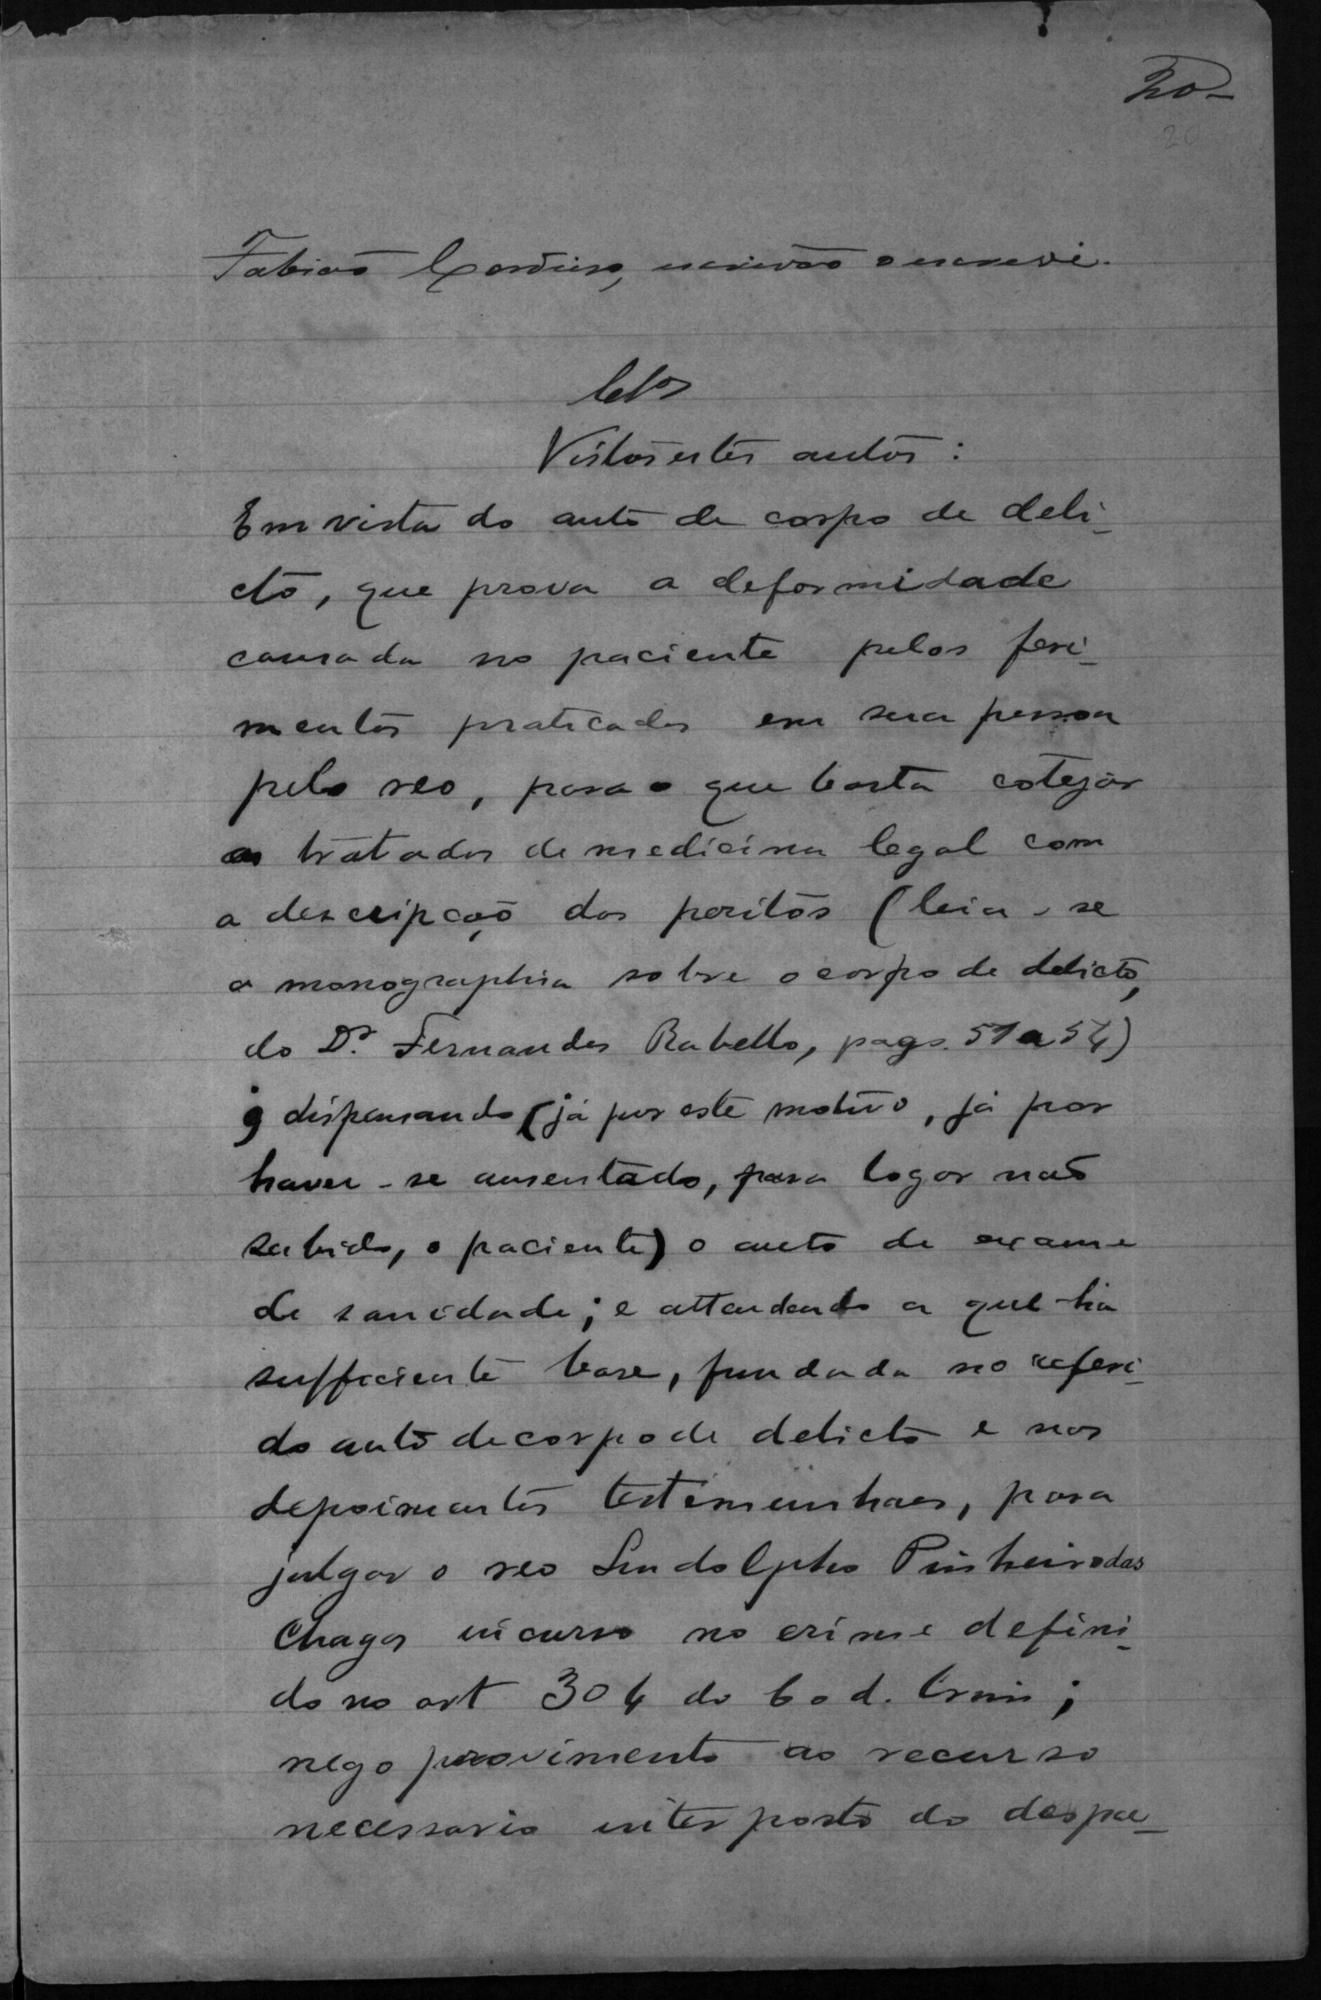 20-
20
Fabião Cardoso, escrivão o escrevi.
Cls
Vistos estes autos:
Em vista do auto de corpo de deli-
cto, que prova a deformidade
causada no paciente pelos feri-
mentos praticados em sua pessoa
pelo reo, para o que basta cotejar
os tratados de medicina legal com
a descripção dos peritos (leia-se
a monographia sobre o corpo de delicto,
do Dr. Fernandes Rabello, pags. 51 a 54)
; dispensando (já por este motivo, já por
haver-se ausentado, para logar não
sabido, o paciente) o auto de exame
de sanidade; e attendendo a que ha
sufficiente base, fundada no referi-
do auto de corpo de delicto e nos
depoimentos testemunhaes, para
julgar o reo Lindolpho Pinheiro das
Chagas incurso no crime defini-
do no art 304 do Cod. Crim;
nego provimento ao recurso
necessario interposto do despa-